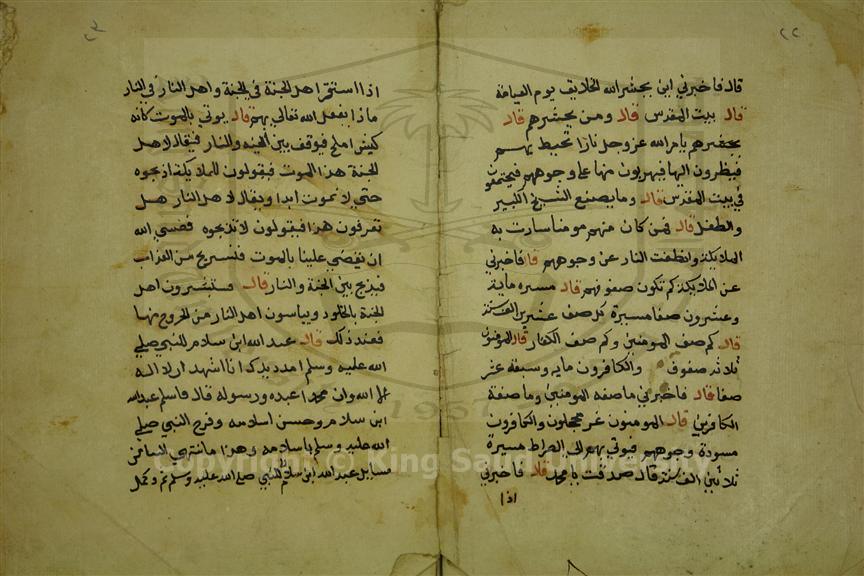 ٢٢
قال فاخبرني اين يحشر الله الخلايق يوم القيامة
قال بيت المقدس قال ومن يحشرهم قال
يحشرهم بامر الله عز وجل نارا تحيط بهم
فينظرون اليها فيهربون منها علي وجوههم
في بيت المقدس قال وما يصنع الشيخ الكبير
والطفل قال فمن كان منهم مومنا سارت به
الملايكة وانطفت النار عن وجوههم قال فاخبرني
عن الملايكة كم تكون صفوفهم قال مسيره ماية
وعشرون صفا مسيرة كل صف عشرين الف سنة
قال كم صف المومنين وكم صف الكفار قال المومنون
ثلاثه صفوف والكافرون مايه وسبعة عشر
صفا قال فاخبرني ما صفه المومنين وما صفة
الكافرين قال المومنون غر محجلون والكافرون
مسودة وجوههم فيوتي بهم الي الصراط مسيرة
ثلاثين الف سنة قال صدقت يا محمد قال فاخبرني
اذا
٢٣
اذا استقر اهل الجنة في الجنة واهل النار في النار
ماذا يفعل الله تعالي بهم قال يوتي بالموت كانه
كبش املح فيوقف بين الجنه والنار فيقال لاهل
الجنة هذا الموت فيقولون للملايكة اذبحوه
حتي لا نموت ابدا ويقال لاهل النار هل
تعرفون هذا فيقولون لا تذبحوه فعسي الله
ان يقضي علينا بالموت فنستريح من العذاب
فيذبح بين الجنة والنار قال فستبشرون اهل
الجنة بالخلود وياسون اهل النار من الخروج منها
فعند ذلك قال عبد الله ابن سلام للنبي صلي
الله عليه وسلم امدد يدك انا اشهد ان لا اله
الا الله وان محمدا عبده ورسوله قال فاسلم عبد الله
ابن سلام وحسن اسلامه وفرح النبي صلي
الله عليه وسلم باسلامه وهذا ما انتهي الينا من
مسايل عبد الله ابن سلام للنبي صلي الله عليه وسلم تم وكمل
Copyright © King Saud University
1957